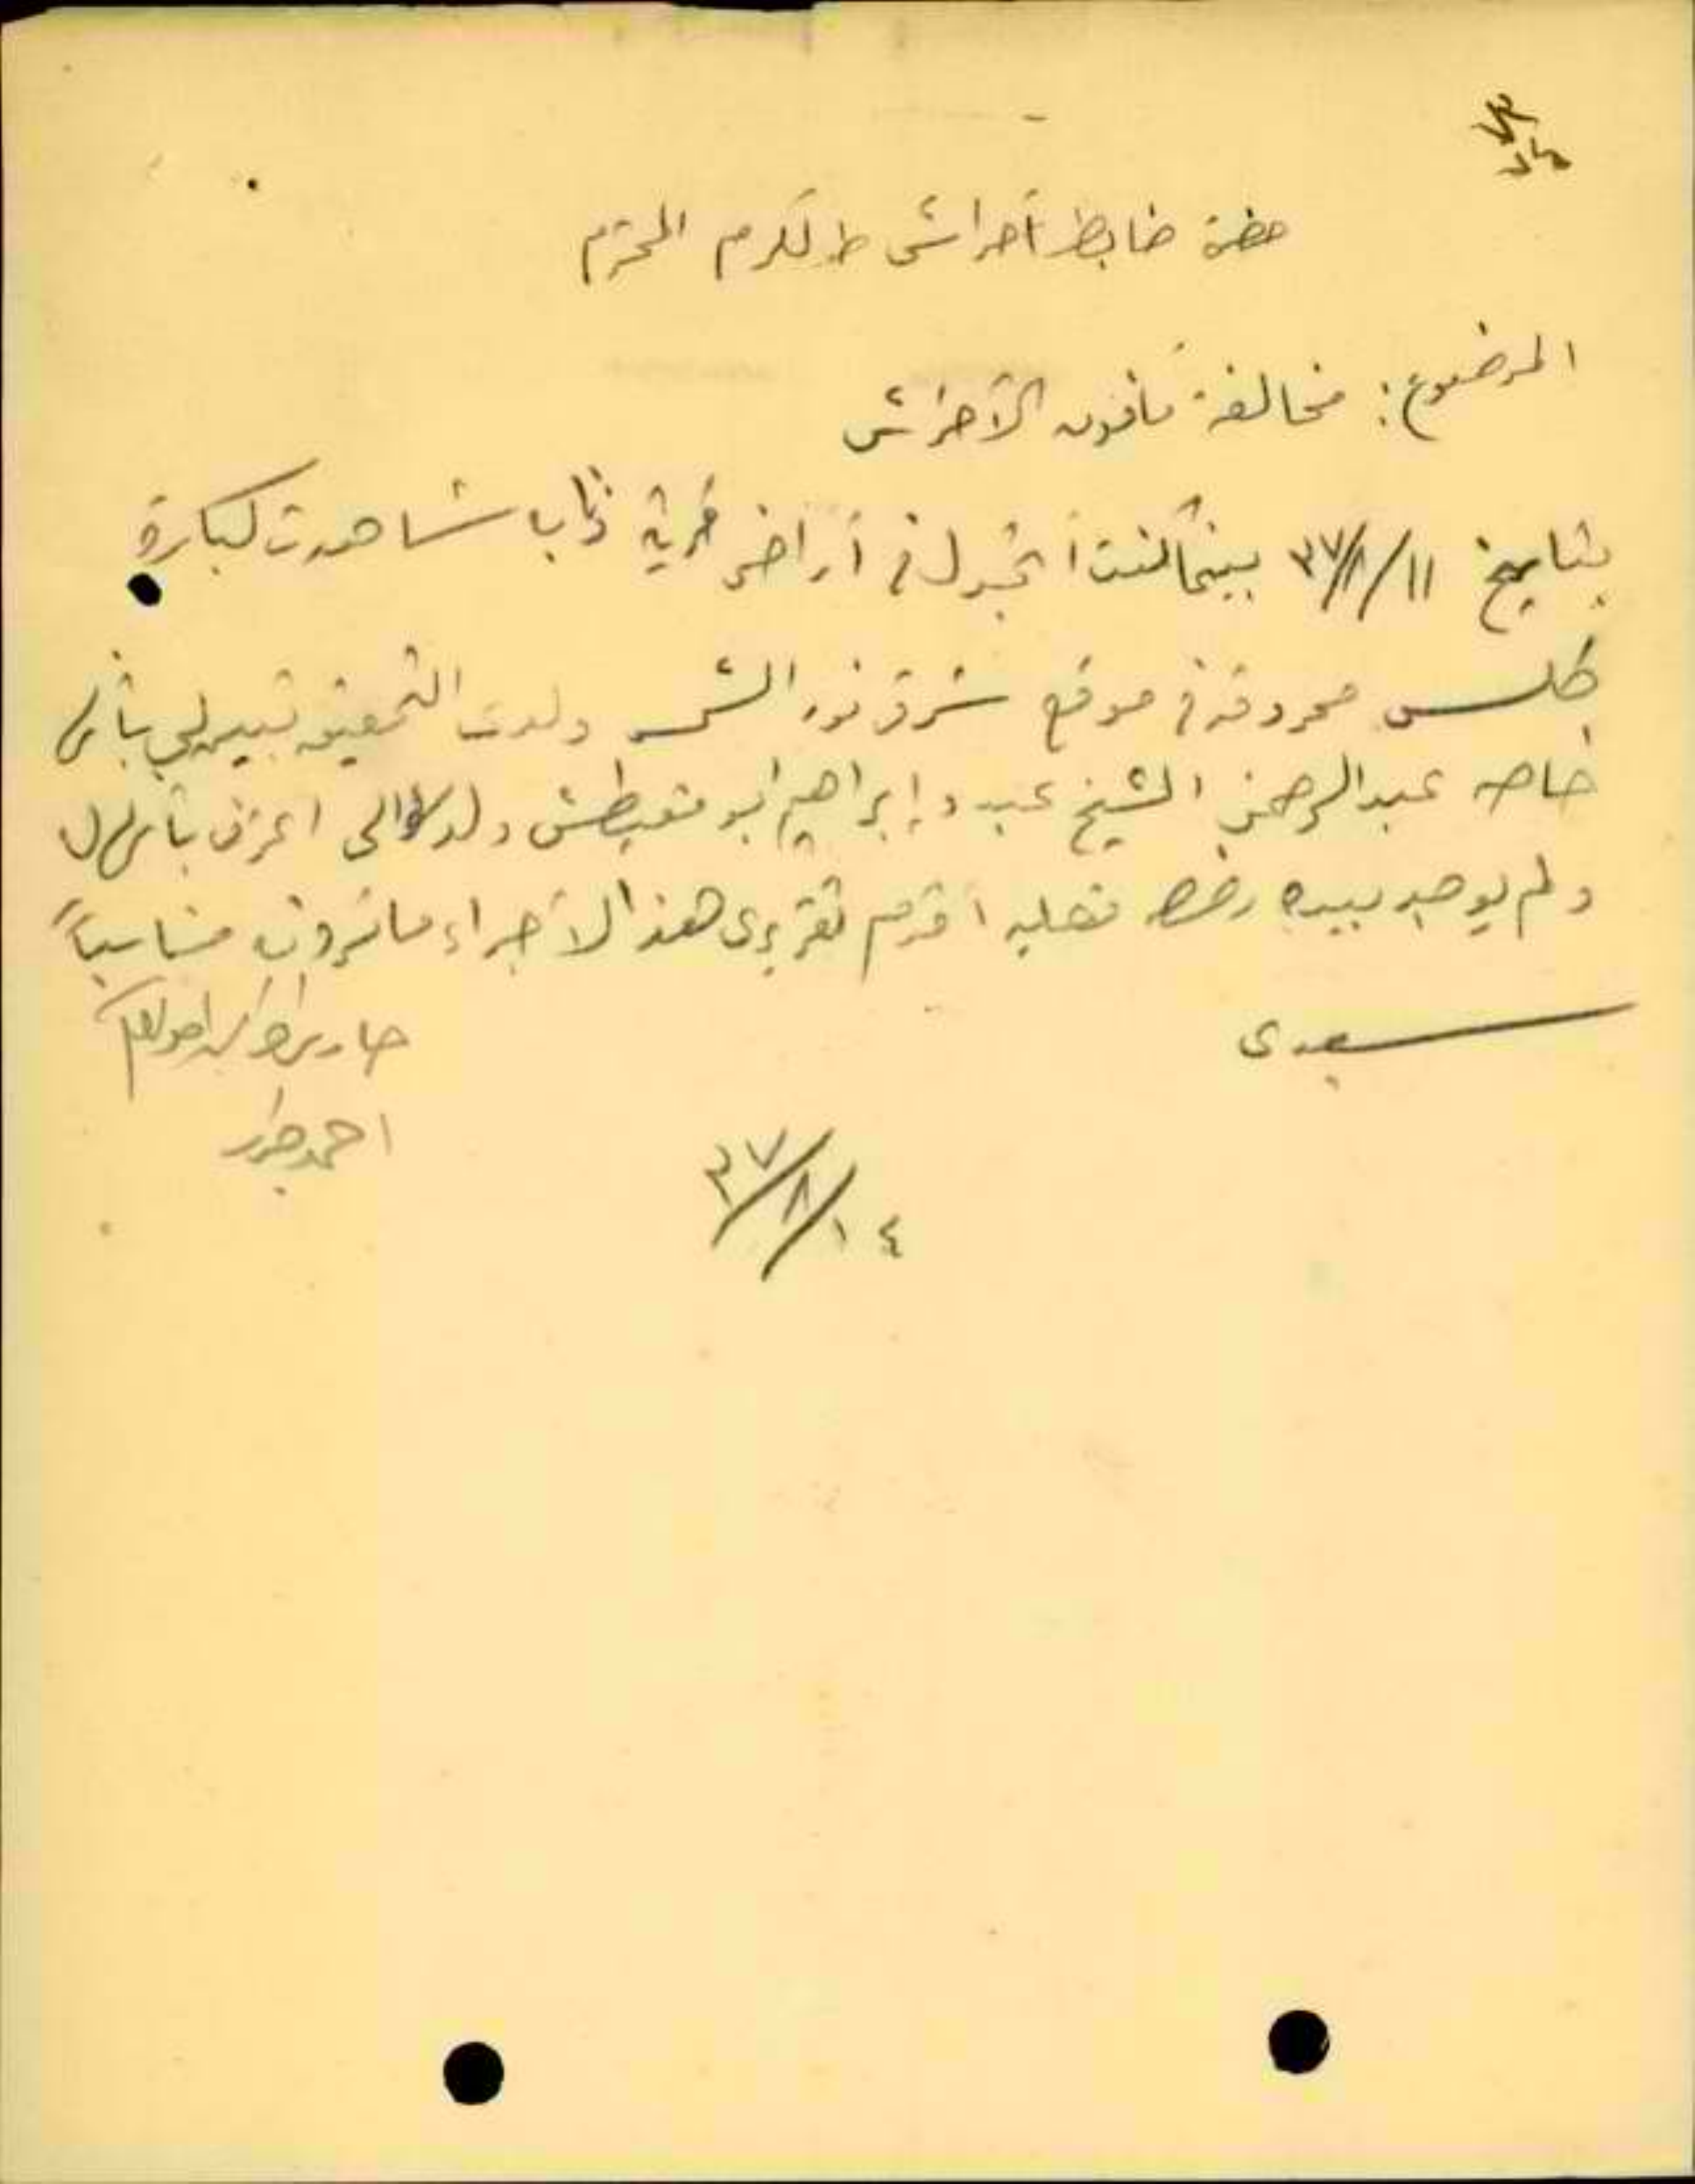 حضرة ضابط أحراش طولكرم المحترم
الموضوع: مخالفة قانون الأحراش
بتاريخ ١١/٨/٣٧ بينما كنت أتجول في أراضي قرية شاهدت كبارة
كلس محروقة في موقع شرق نور الشمس ولدى التحقيق تبين لي بأنها
خاصة عبد الرحمن الشيخ عبد و إبراهيم أبو ولدى سؤالي اعترف بأنها له
ولم يوجد بيده رخصة فعليه أقدم تقريري هذا لأجراء ما ترونه مناسباً
سيدي
حارس أحراش طولكرم
احمد
١٤/٨/٣٧